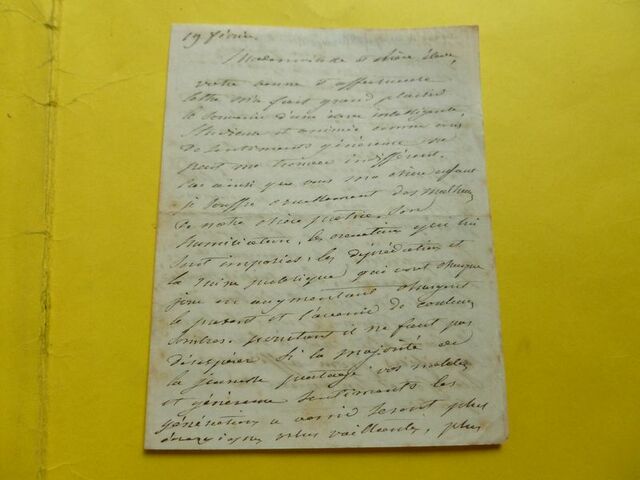 19 février
Mademoiselle et chère élève,
votre bonne et affectueuse
lettre m'a fait grand plaisir
le souvenir d'une âme intelligente,
studieuse et animée comme vous
de sentiments généreux ne
peut me trouver indifférent.
C'est ainsi que vous ma chère enfant
je souffre cruellement des malheurs
de notre chère patrie. Son
humiliation, les sacrifices qui lui
sont imposés; les déprédations et
la ruine publique qui vont chaque
jour en augmentant chargent
le présent et l'avenir de couleurs
sombres. pourtant il ne faut pas
désespérer. Si la majorité de
la jeunesse partage vos mâles
et généreux sentiments les
générations à venir seront plus
énergiques plus vaillantes, plus